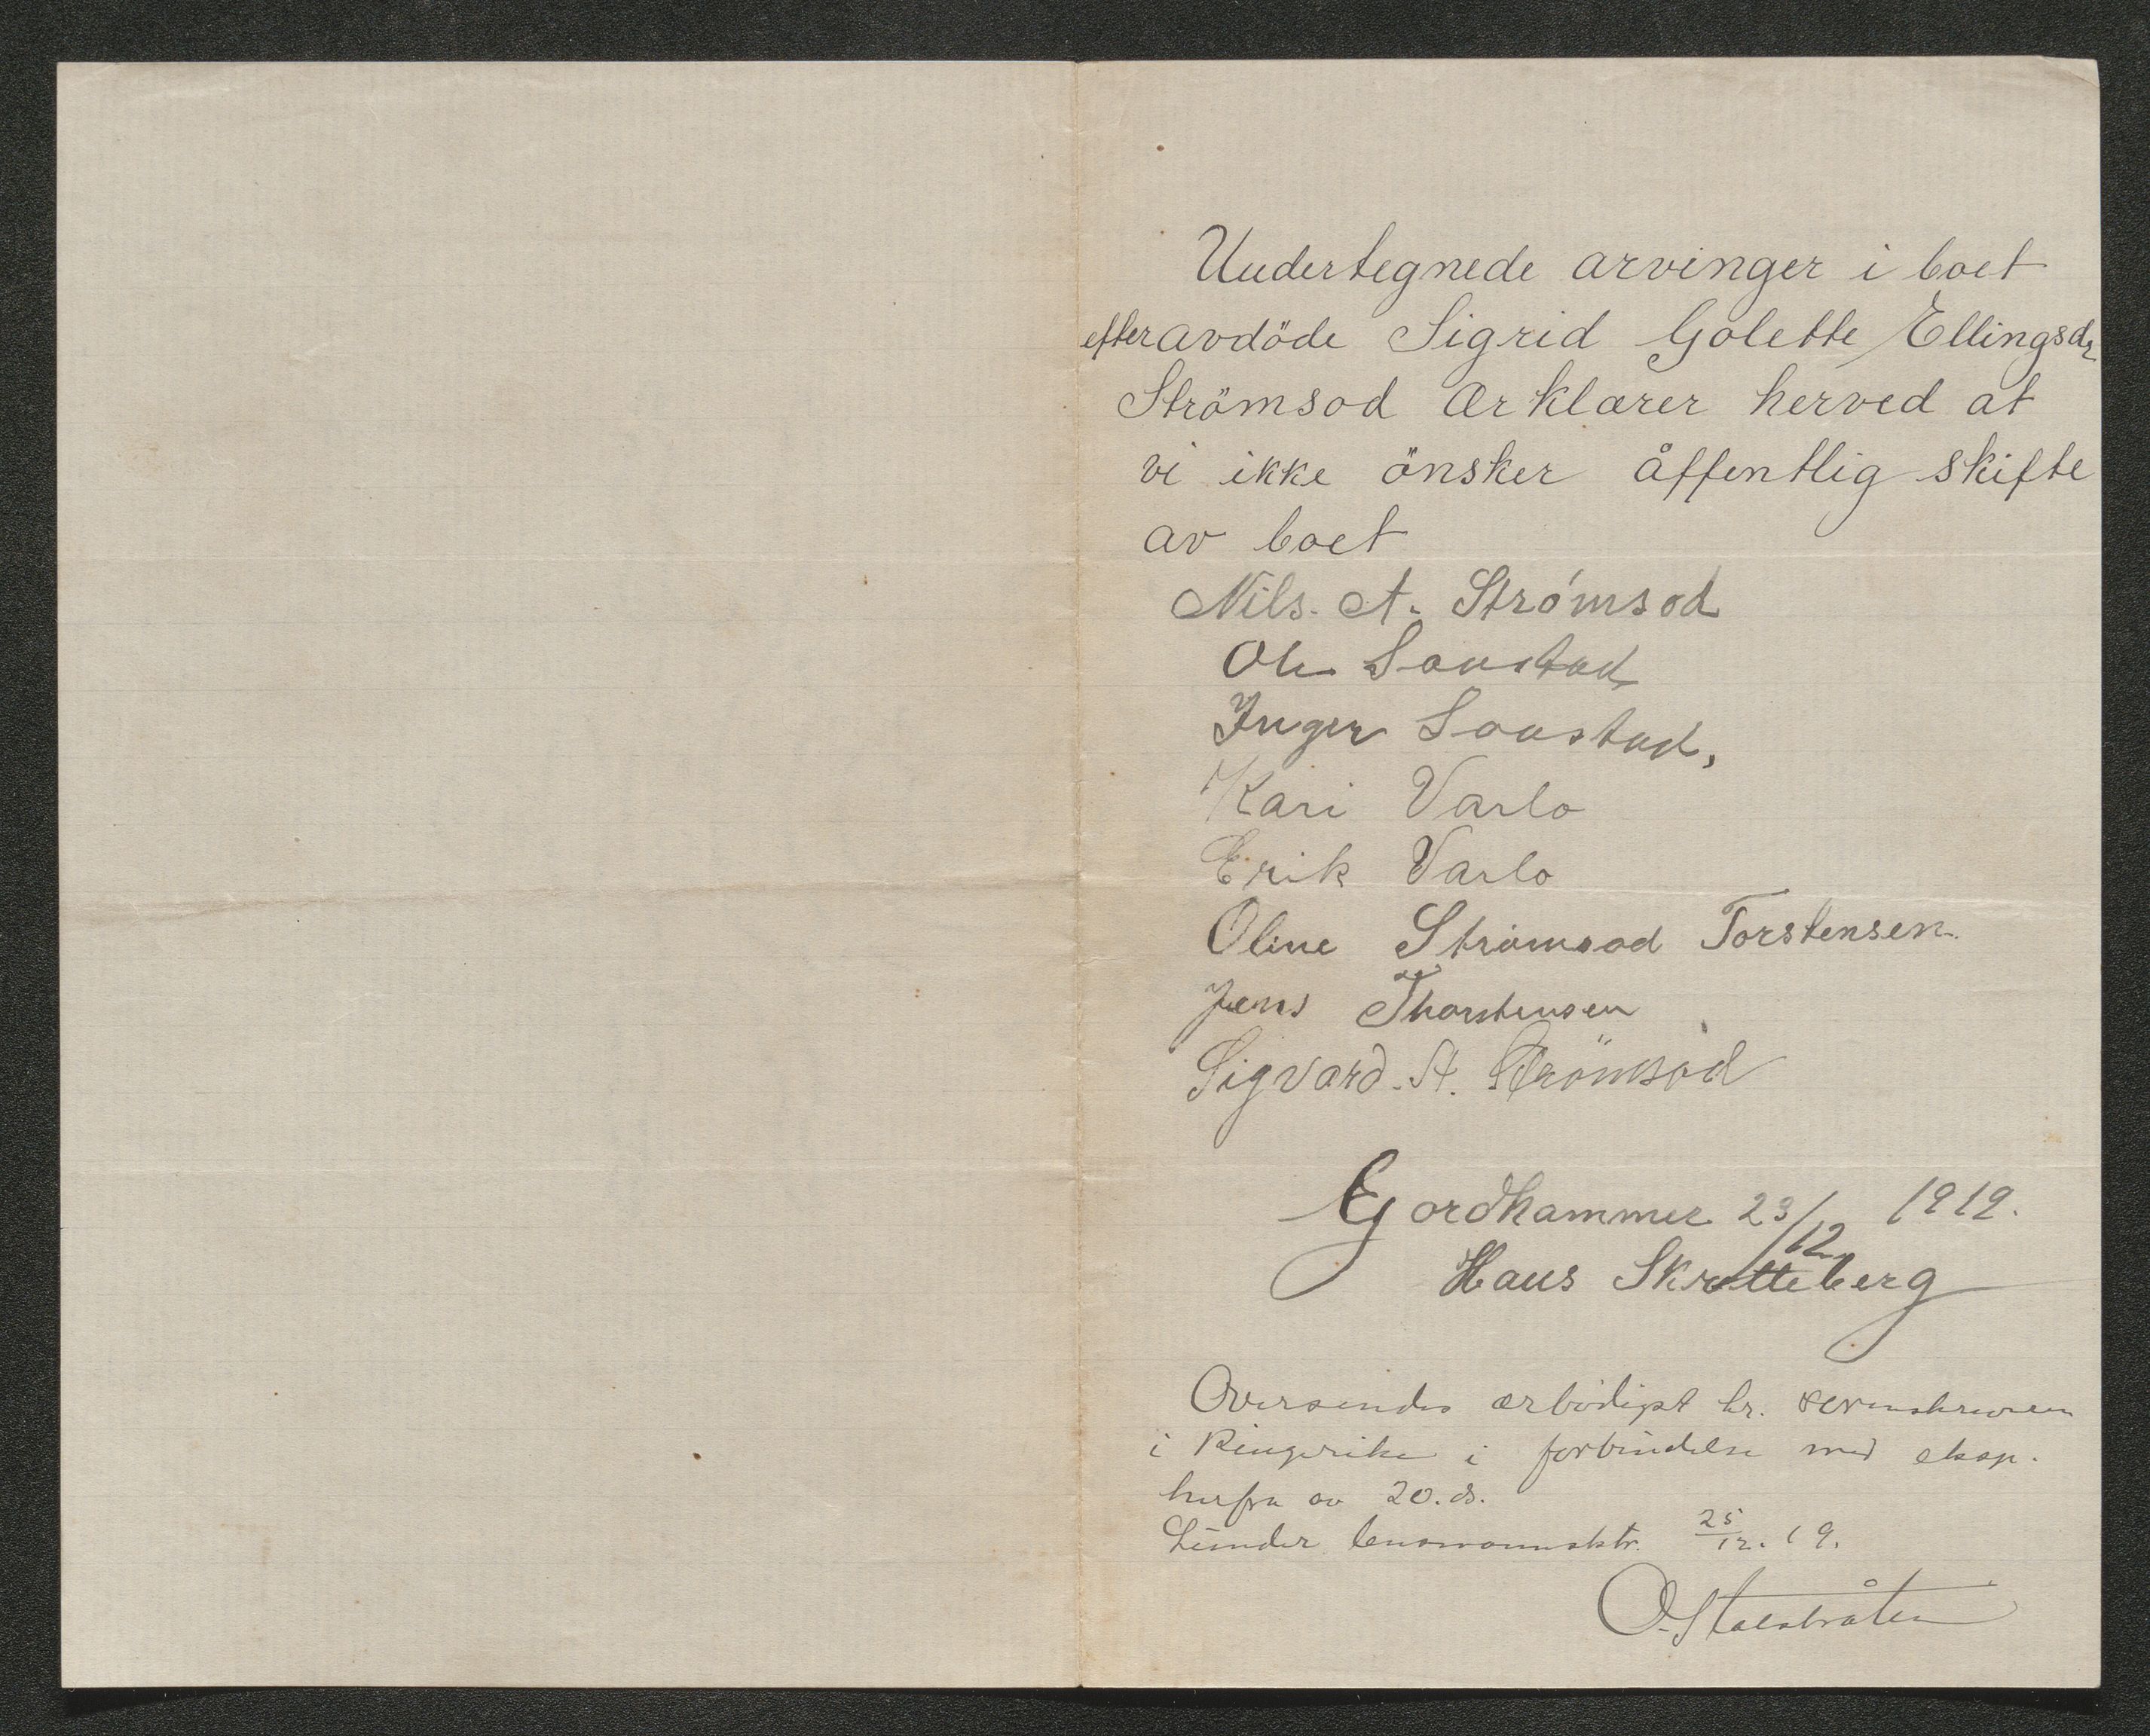 Undertegnede arvinger i boet
efter avdöde Sigrid Golette Ellingsdr
Strömsod ærklærer herved at
vi ikke önsker åffentlig skifte
av boet
Nils. A. Strómsod
Ole Saustad
Inger Saustad,
Kari Varlo
Erik Varlo
Oline Strömsod Torstensen
Jens Thorstensen
Sigvard. A. Strömsod
Gjordhammer 23/12 1919.
Hans Skrotteberg
Oversendes ærbödigst hr. sorenskriveren
i Ringerike i forbindelse med eksp.
herfra av 20. ds.
Lunder lensmannsktr. 25/12. 19.
O. Stalsbråten